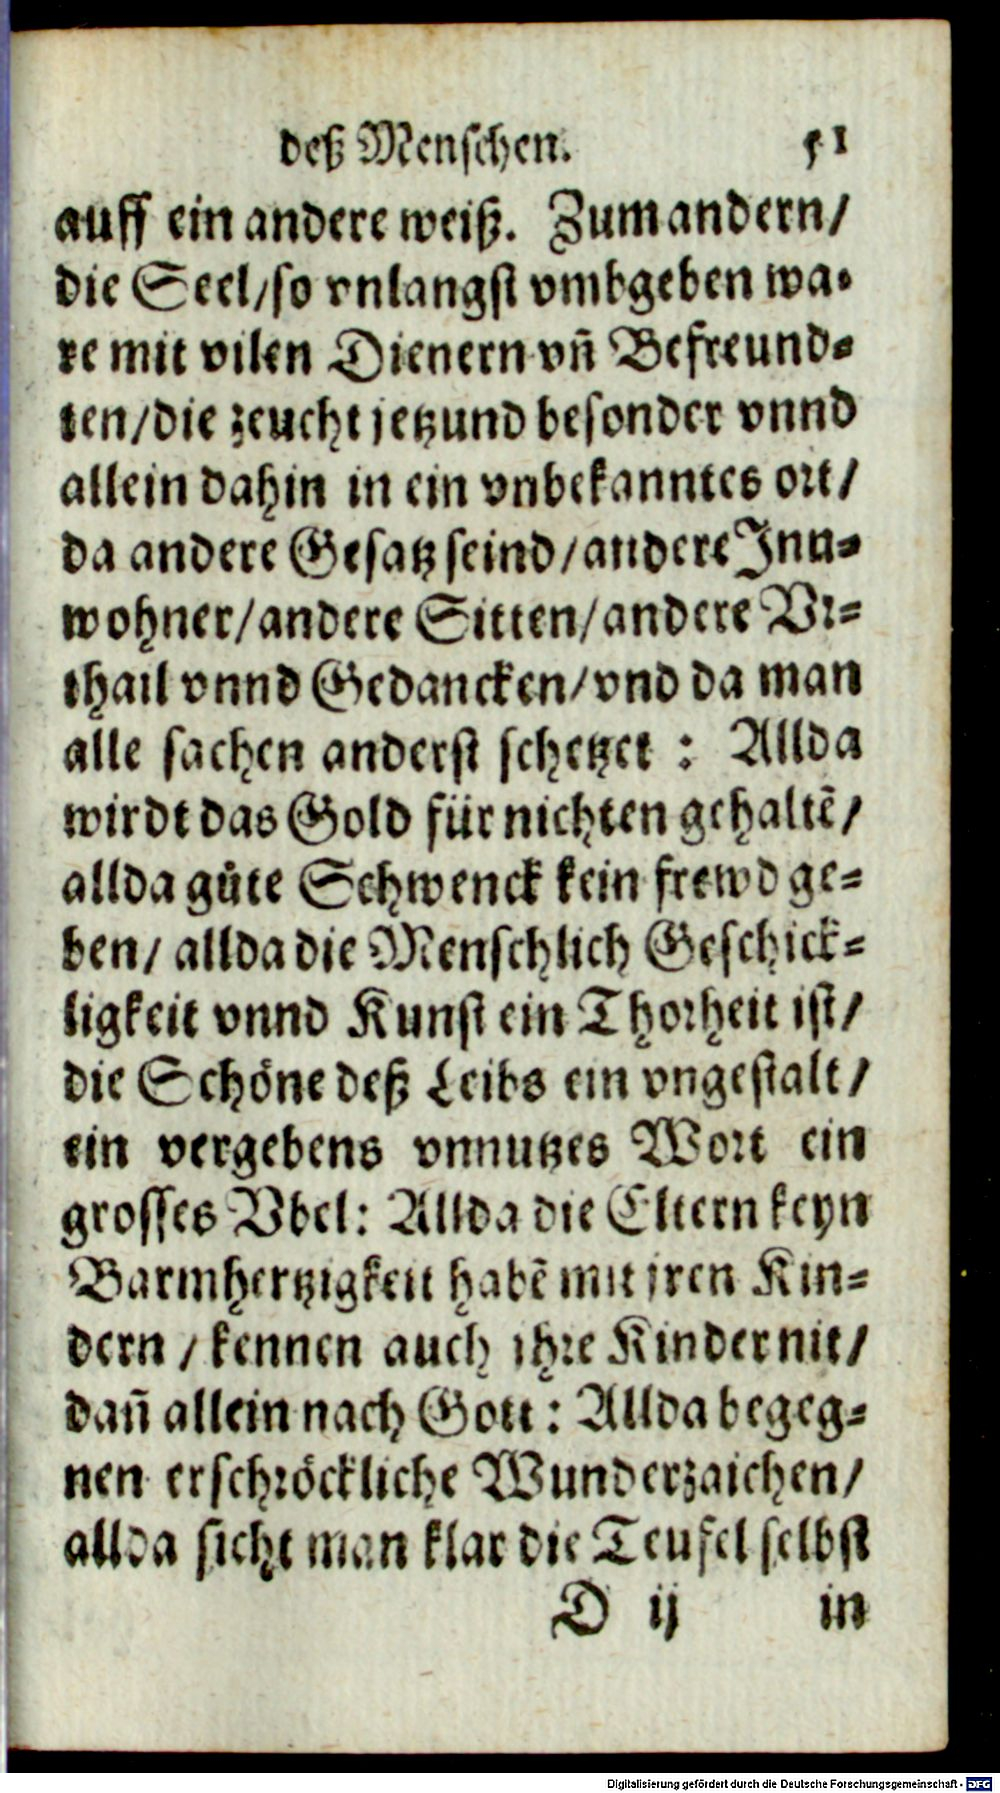 deß Menschen. 51
auff ein andere weiß. Zum andern/
die Seel/so vnlangst vmbgeben wa-
re mit vilen Dienern vñ Befreund-
ten/die zeucht jetzund besonder vnnd
allein dahin in ein vnbekanntes ort/
da andere Gesatz seind/andere Inn-
wohner/andere Sitten/andere Vr-
thail vnnd Gedancken/vnd da man
alle sachen anderst schetzet : Allda
wirdt das Gold für nichten gehaltē/
allda gůte Schwenck kein frewd ge-
ben/ allda die Menschlich Geschick-
ligkeit vnnd Kunst ein Thorheit ist/
die Schöne deß Leibs ein vngestalt/
ein vergebens vnnutzes Wort ein
grosses Vbel: Allda die Eltern keyn
Barmhertzigkeit habē mit jren Kin-
dern / kennen auch ihre Kinder nit/
dañ allein nach Gott: Allda begeg-
nen erschröckliche Wunderzaichen/
allda sicht man klar die Teufel selbst
D ij in
Digitalisierung gefördert durch die Deutsche Forschungsgemeinschaft - DFG